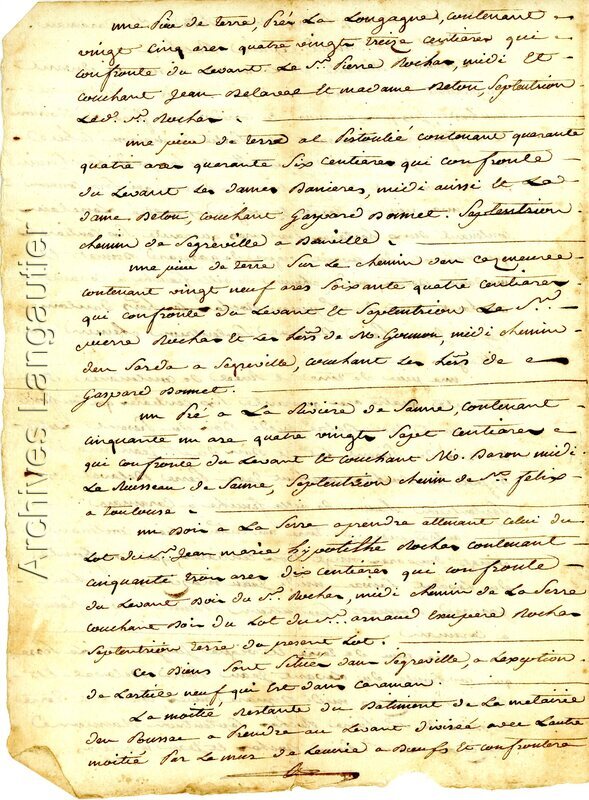 une Piece de terre, Près La Longagne, contenant
vingt cinq ares quatre vingt treize centiares qui
confronte du Levant Le Sr. Pierre Rochas, midi et
couchant Jean Delareal et madame Betou, Septentrion
Led. Sr. Rochas.
une piece de terre al Pistoulié contenant quarante
quatre ares quarante Six centiares qui confronte
du Levant Les dames Banieres, midi aussi et La
dame Betou, couchant Gaspard Bonnet. Septentrion
chemin de Segreville a Beauville.
une piece de terre Sur Le chemin den
contenant vingt neuf ares Soixante quatre centiares
qui confronte du Levant et Septentrion Le Sr.
pierre Rochas et Les hers de M. Gounon, midi chemin
den Sarda a Segreville, couchant Les hers de
Gaspard Bonnet.
un Pré a La Riviere de Saune, contenant
cinquante un are quatre vingts Sept centiares
qui confronte du Levant et couchant M. Baron midi
Le Ruisseau de Saune, Septentrion chemin de St. felix
a Toulouse.
un Bois a La Serre a prendre attenant celui du
Lot du Sr. Jean marie hypolithe Rochas contenant
cinquante trois ares dix centiares qui confronte
du Levant Bois du Sr. Rochas, midi chemin de La Serre
couchant Bois du Lot du Sr. arnaud exupere Rochas
Septentrion terre du present Lot.
Ces Biens Sont Situés dans Segreville, a Lexeption
de Lastile neuf qui Est dans caraman.
La moitié Restante du Batiment de La metairie
den Poussac a Prendre au Levant divisée avec Lautre
moitié Par Le mur de Lecurie a Boeufs et confrontera
Archives Langautier